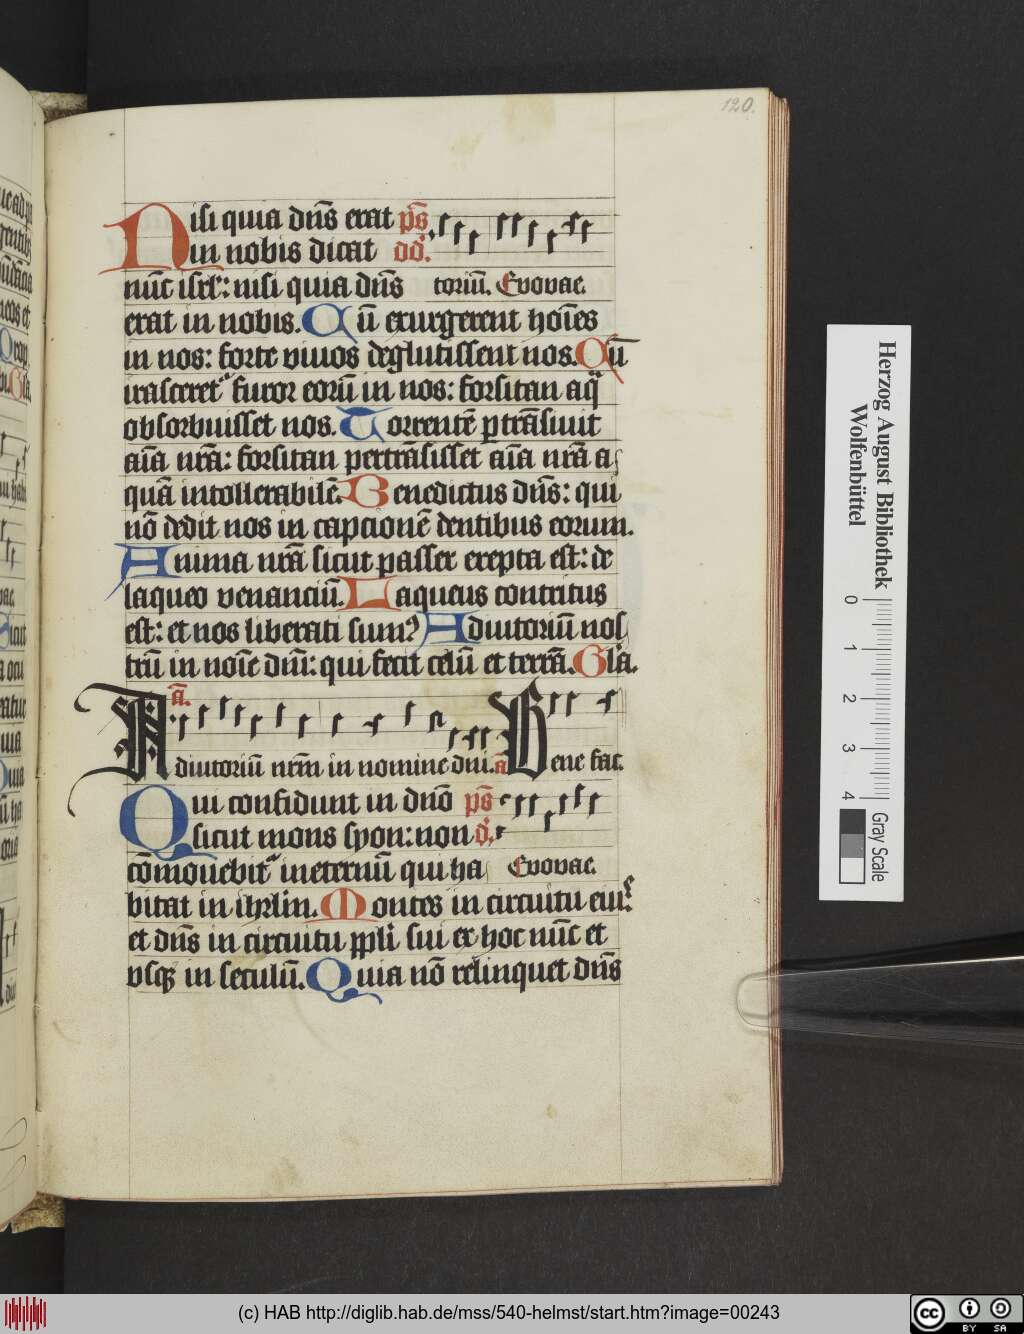 120.
Nisi quia dn̄s erat ps̄
in nobis dicat
nūc isrl̄: nisi quia dn̄s toriū. Evovae.
erat in nobis. Cū exurgerent hoīes
in nos: forte vivos deglutissent nos. Cū
irasceret᷑ furor eorū in nos: forsitan aq̄
obsorbuisset nos. Torrentē ꝑtrāsivit
aīa nrā: forsitan pertrāsisset aīa nrā a
quā intollerabilē. Benedictus dn̄s: qui
nō dedit nos in captionē dentibus eorum.
Anima nrā sicut passer erepta est: de
laqueo venanciū. Laqueus contritus
est: et nos liberati sumꝰ Adiutoriū nos
trū in noīe dnī: qui fecit celū et terrā. Gl̄a.
a.
Adiutoriū nr̄m in nomine dnī. a Bene fac.
Qui confidunt in dn̄o ps̄
sicut mons syon: non
cōmovebit᷑ ineternū qui ha Evovae.
bitat in ihrlm̄. Montes in circuitu eiuꝰ:
et dn̄s in circuitu ppl̄i sui ex hoc nūc et
usqꝫ in seculū. Quia nō relinquet dn̄s
Herzog August Bibliothek
Wolfenbüttel
0 1 2 3 4
Gray Scale
(c) HAB http://diglib.hab.de/mss/540-helmst/start.htm?image=00243
cc BY SA